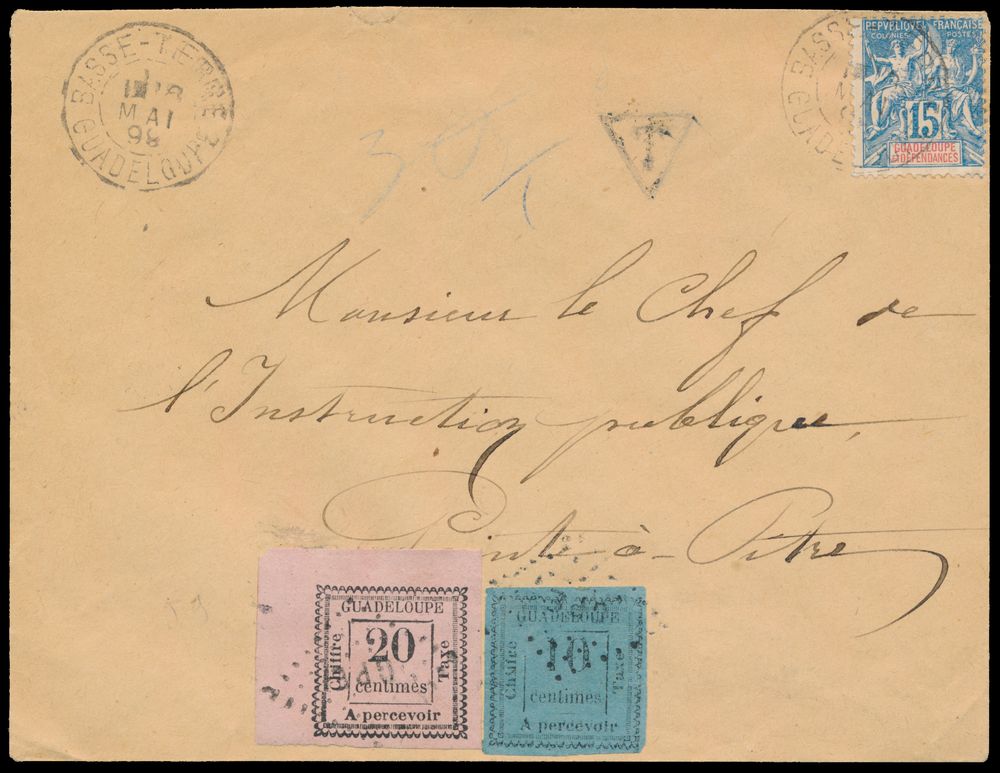 BASSE-TERRE
MAI
98
GUADELOUPE
T
BASSE
GUADE
REPUBLIQUE FRANÇAISE
COLONIES POSTES
15
GUADELOUPE
ET DÉPENDANCES
Monsieur le Chef de
l'Instruction publique,
Pointe-à-Pitre
GUADELOUPE
Chiffre
20
centimes
Taxe
A percevoir
GUADELOUPE
Chiffre
10
centimes
Taxe
A percevoir